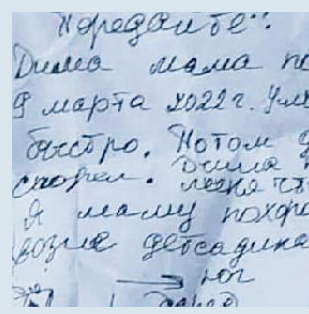 Передайте:
Дима мама по
9 марта 2022 г. Ум
быстро. Потом
сгорел. Дима
я маму похоро
возле детсадика
юг